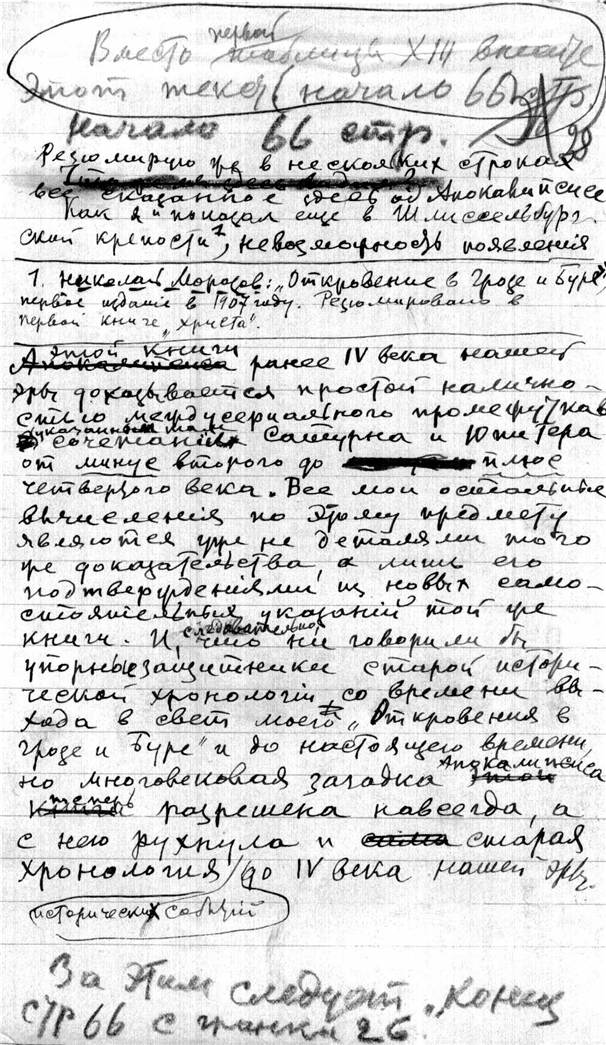 Вместо первой таблицы XIII вышие
Этот текст (начало 66 стр.
Начало 66 стр.
28
Резюмирую же в нескольких строках
все сказанное здесь об Апокалипсисе
Как я и показал еще в Шлиссельбург-
ской крепости¹, невозможность появления
1. Николай Морозов: „Откровение в Грозе и Буре",
первое издание в 1907 году. Резюмировано в
первой книге „Христа".
этой книги
Апокалипсиса ранее IV века нашей
эры доказывается простой налично-
стью междусериального промежутка в
указанных там
сочетаниях Сатурна и Юпитера
от минус второго до плюс
четвертого века. Все мои остальные
вычисления по этому предмету
являются уже не деталями того
же доказательства, а лишь его
подтверждениями из новых само-
стоятельных указаний той же
книги. И, следовательно, что ни говорили бы
упорные защитники старой истори-
ческой хронологии со времени вы-
хода в свет моего „Откровения в
грозе и Буре" и до настоящего времени,
но многовековая загадка этой Апокалипсиса
книги теперь разрешена навсегда, а
с нею рухнула и сама старая
хронология до IV века нашей эры.
исторических событий
За этим следует „Конец
стр 66 с гранки 26.